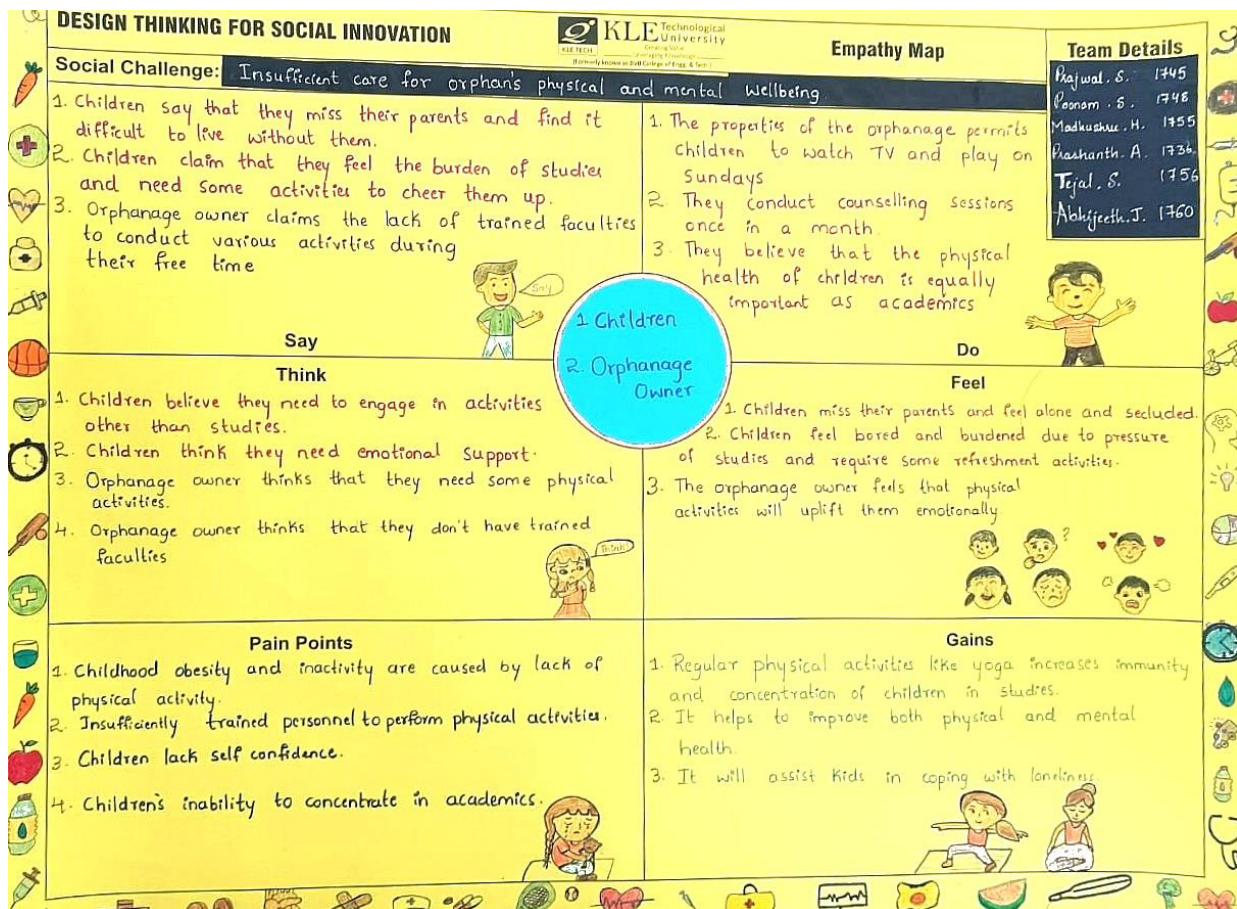 DESIGN THINKING FOR SOCIAL INNOVATION
KLE Technological
University
Creating Value
Leveraging Knowledge
KLE TECH
(Formerly known as BVB College of Engg. & Tech.)
Empathy Map
Team Details
Prajwal. S. 1745
Poonam. S. 1748
Madhushree. H. 1755
Prashanth. A. 1736
Tejal. S. 1756
Abhijeeth. J. 1760
Social Challenge: Insufficient care for orphan's physical and mental wellbeing
1. Children say that they miss their parents and find it
difficult to live without them.
2. Children claim that they feel the burden of studies
and need some activities to cheer them up.
3. Orphanage owner claims the lack of trained faculties
to conduct various activities during
their free time
Say
Say
1. The properties of the orphanage permits
children to watch TV and play on
Sundays
2. They conduct counselling sessions
once in a month.
3. They believe that the physical
health of children is equally
important as academics
Do
1 Children
2. Orphanage
Owner
Think
1. Children believe they need to engage in activities
other than studies.
2. Children think they need emotional support.
3. Orphanage owner thinks that they need some physical
activities.
4. Orphanage owner thinks that they don't have trained
faculties
Think
Feel
1. Children miss their parents and feel alone and secluded.
2. Children feel bored and burdened due to pressure
of studies and require some refreshment activities.
3. The orphanage owner feels that physical
activities will uplift them emotionally
?
Pain Points
1. Childhood obesity and inactivity are caused by lack of
physical activity.
2. Insufficiently trained personnel to perform physical activities.
3. Children lack self confidence.
4. Children's inability to concentrate in academics.
Gains
1. Regular physical activities like yoga increases immunity
and concentration of children in studies.
2. It helps to improve both physical and mental
health.
3. It will assist kids in coping with loneliness.